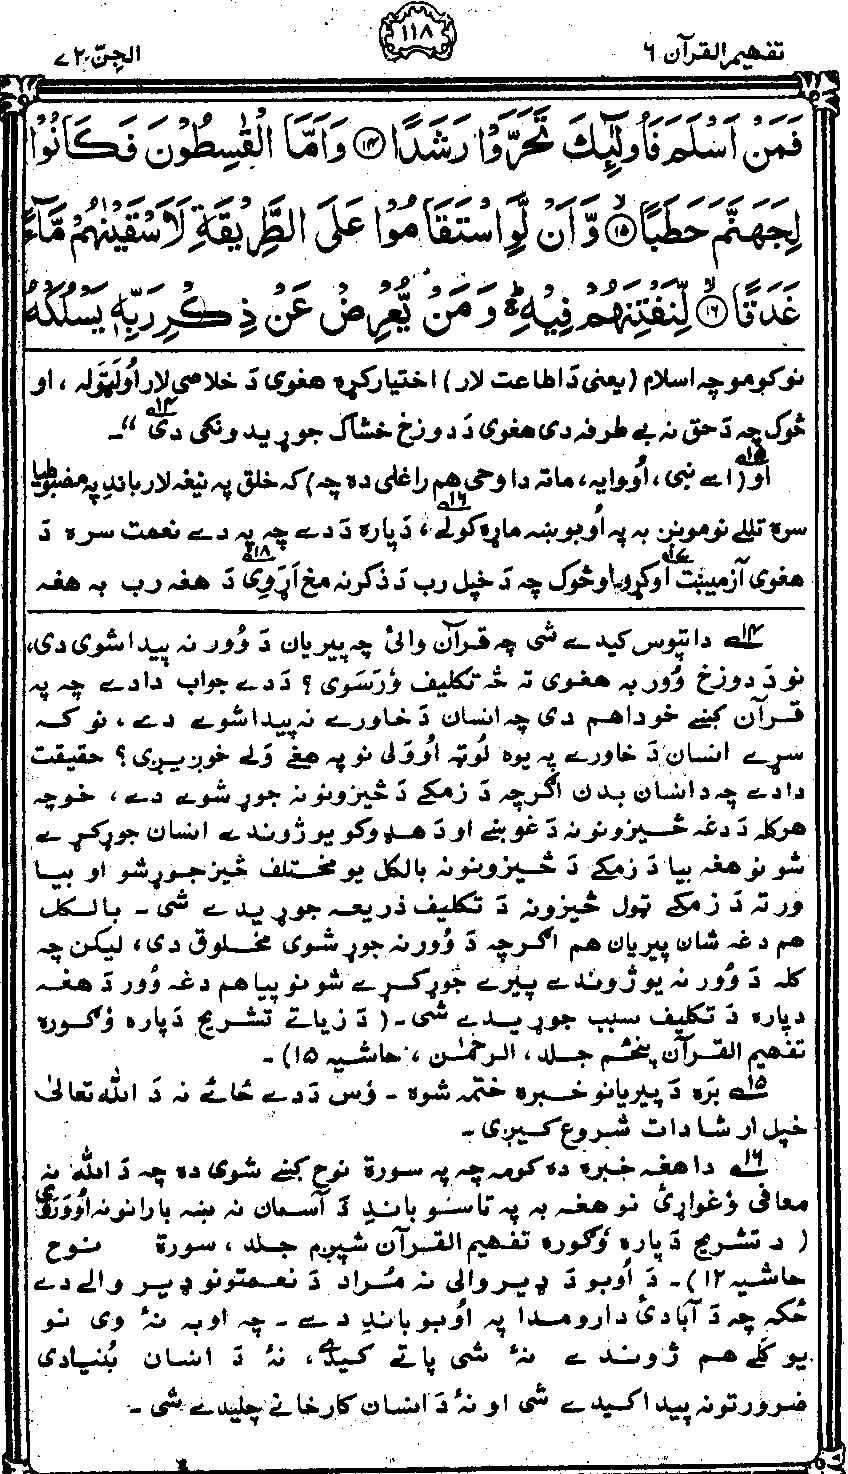 تفهیم القرآن ۶
۱۱۸
الجِنّ ۷۲
فَمَنْ اَسْلَمَ فَاُولٰٓئِكَ تَحَرَّوْا رَشَدًا ﴿۱۴﴾ وَاَمَّا الْقٰسِطُوْنَ فَكَانُوْا
لِجَهَنَّمَ حَطَبًا ﴿۱۵﴾ وَّاَنْ لَّوِ اسْتَقَامُوْا عَلَى الطَّرِيْقَةِ لَاَسْقَيْنٰهُمْ مَّآءً
غَدَقًا ﴿۱۶﴾ لِّنَفْتِنَهُمْ فِيْهِ ؕ وَمَنْ يُّعْرِضْ عَنْ ذِكْرِ رَبِّهٖ يَسْلُكْهُ
نو کومو چه اسلام (یعنی دَ اطاعت لار) اختیار کړه هغوی دَ خلاصی لار اُولټوله ، او
څوک چه دَ حق نه بے طرفه دی هغوی دَ دوزخ خشاک جوړیدونکی دی ۱۴ “۔
۱۵ او (اے نبی ، اُووایه ، ماته دا وحی هم راغلی ده چه) که خلق په نیغه لار باندِ په مضبوطیا
سره تللے نو مونږ به په اُوبو ښه ماړه کولے ۱۶ ، دَپاره دَ دے چه په دے نعمت سره دَ
هغوی آزمیښت اوکړو ۱۷ او څوک چه دَ خپل رب دَ ذکر نه مخ اَړوی ۱۸ دَ هغه رب به هغه
۱۴ دا تپوس کیدے شی چه قرآن والیٔ چه پیریان دَ وُور نه پیدا شوی دی،
نو دَ دوزخ وُور به هغوی ته څه تکلیف وُرسوی ؟ دَ دے جواب دا دے چه په
قرآن کښے خو دا هم دی چه انسان دَ خاورے نه پیدا شوے دے ، نو که
سړے انسان دَ خاورے په یوه لُوټه اُوولی نو په هغے ولے خوږیږی ؟ حقیقت
دا دے چه د انسان بدن اگرچه دَ زمکے دَ څیزونو نه جوړ شوے دے ، خو چه
هرکله دَ دغه څیزونو نه دَ غوښے او دَ هډوکو یو ژوندے انسان جوړ کړے
شو نو هغه بیا دَ زمکے دَ څیزونو نه بالکل یو مختلف څیز جوړ شو او بیا
ورته دَ زمکے ټول څیزونه دَ تکلیف ذریعه جوړیدے شی ۔ بالکل
هم دغه شان پیریان هم اگرچه دَ وُور نه جوړ شوی مخلوق دی ، لیکن چه
کله دَ وُور نه یو ژوندے پیرے جوړ کړے شو نو بیا هم دغه وُور دَ هغه
دپاره دَ تکلیف سبب جوړیدے شی ۔ (دَ زیاتے تشریح دَپاره وُگوره
تفهیم القرآن پنځم جلد ، الرحمٰن ، حاشیه ۱۵) ۔
۱۵ بَره دَ پیریانو خبره ختمه شوه ۔ وُس دَ دے ځائے نه دَ الله تعالیٰ
خپل ارشادات شروع کیږی ۔
۱۶ دا هغه خبره ده کومه چه په سورة نوح کښے شوی ده چه دَ الله نه
معافی وُغواړیٔ نو هغه به په تاسو باندِ دَ آسمان نه ښه بارانونه اُووَروی
(د تشریح دَپاره وُگوره تفهیم القرآن شپږم جلد ، سورة نوح
حاشیه ۱۲) ۔ دَ اُوبو دَ ډیر والی نه مُراد دَ نعمتونو ډیر والے دے
ځکه چه دَ آبادیٔ دارومدا په اُوبو باندِ دے ۔ چه اوبه نهٔ وی نو
یو کلے هم ژوندے نهٔ شی پاتے کیدے ، نهٔ دَ انسان بُنیادی
ضرورتونه پیدا کیدے شی او نهٔ دَ انسان کارخانے چلیدے شی ۔